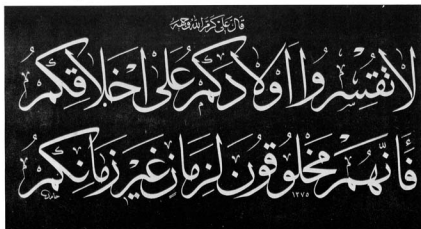 قال علي كرم الله وجهه
لا تقسروا اولادكم على اخلاقكم
فأنهم مخلوقون لزمان غير زمانكم
١٣٧٥